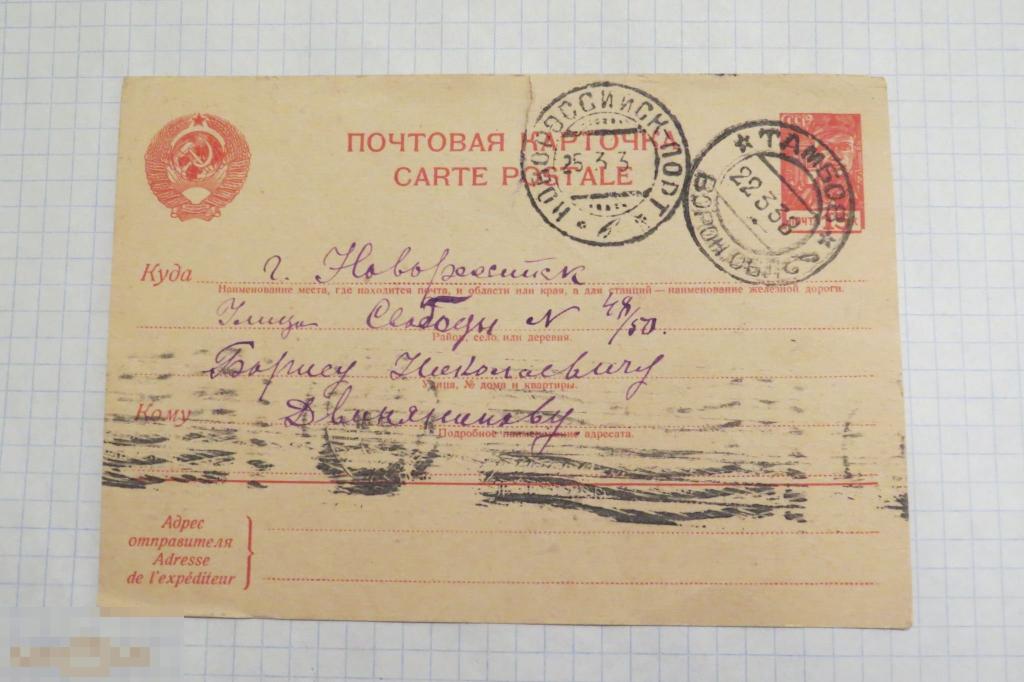 ПОЧТОВАЯ КАРТОЧКА
CARTE POSTALE
НОВОРОССИЙСК ПОРТ
25 3 3
ТАМБОВ
22 3 38
СССР
Куда г. Новоросийск
Наименование места, где находится почта, и области или края, а для станций — наименование железной дороги.
Улица Свободы N 48/50.
Район, село или деревня.
Борису Николаевичу
Улица, № дома и квартиры.
Кому
Подробное наименование адресата.
Адрес
отправителя
Adresse
de l'expéditeur